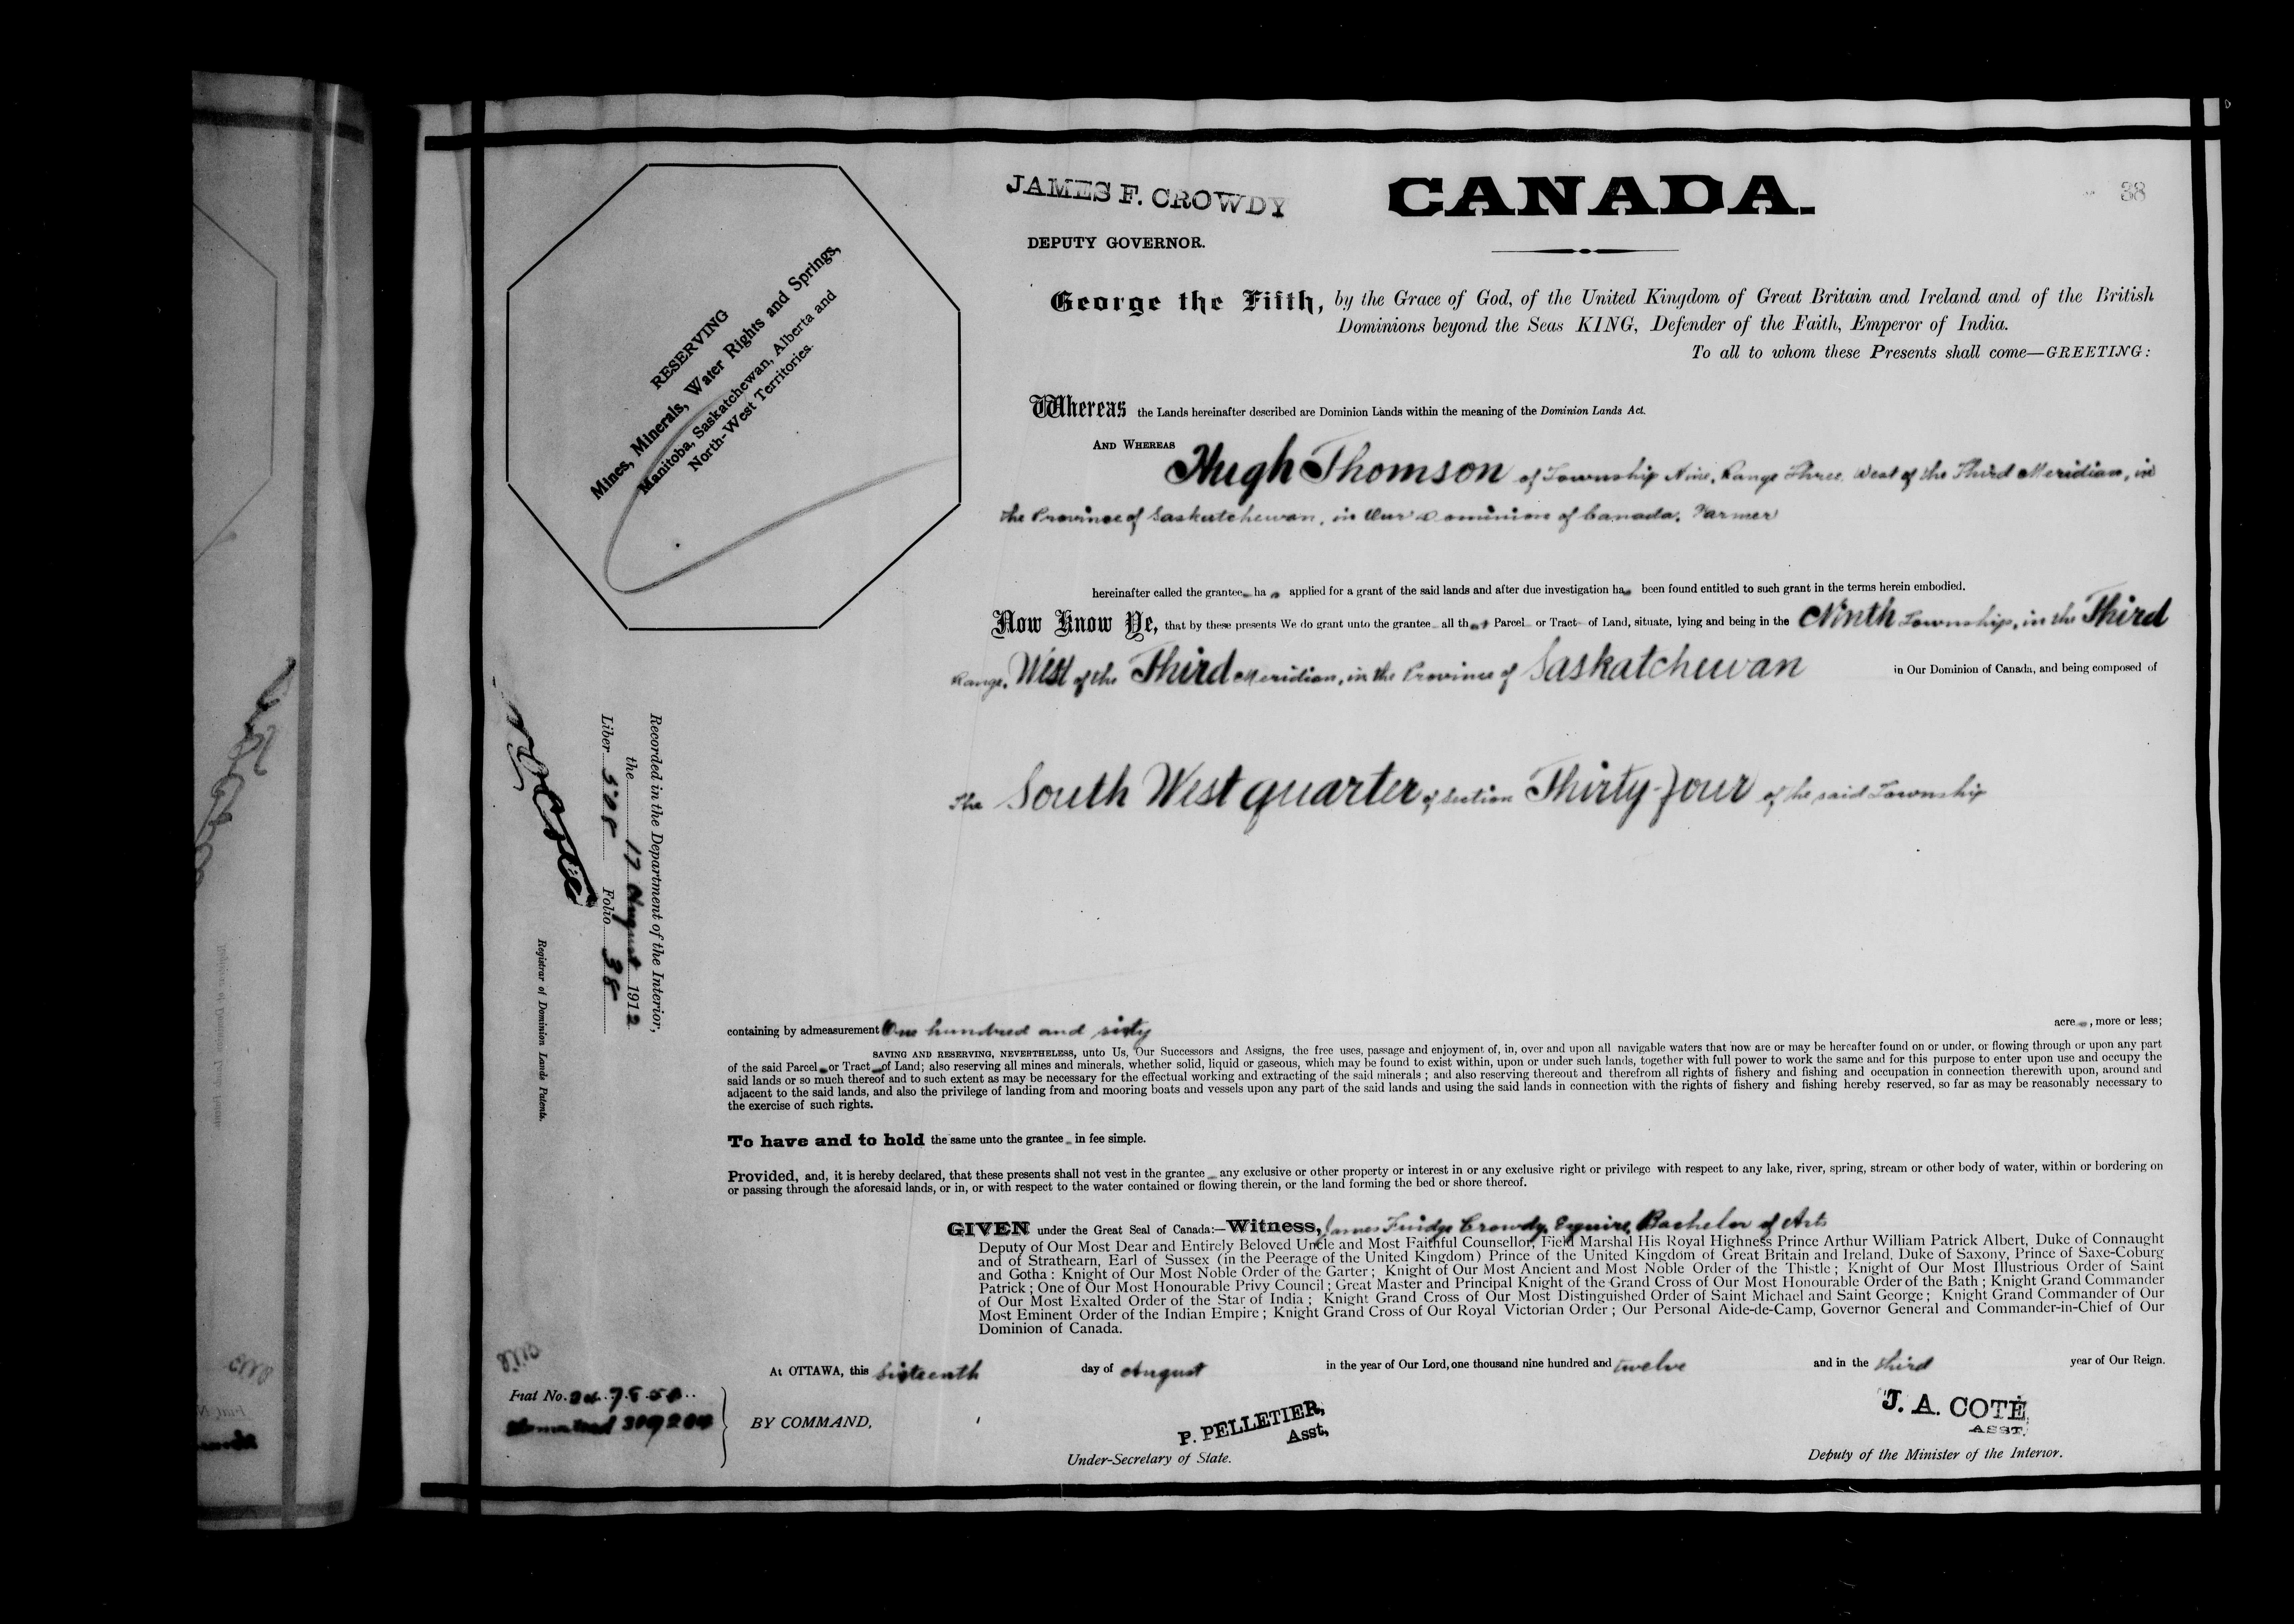 JAMES F. CROWDY
CANADA.
38
DEPUTY GOVERNOR.
George the Fifth, by the Grace of God, of the United Kingdom of Great Britain and Ireland and of the British
Dominions beyond the Seas KING, Defender of the Faith, Emperor of India.
To all to whom these Presents shall come—GREETING:
RESERVING
Mines, Minerals, Water Rights and Springs,
Manitoba, Saskatchewan, Alberta and
North-West Territories.
Whereas the Lands hereinafter described are Dominion Lands within the meaning of the Dominion Lands Act.
AND WHEREAS
Hugh Thomson of Township Nine, Range Three, West of the Third Meridian, in
the Province of Saskatchewan, in Our Dominion of Canada, Farmer
hereinafter called the grantee ha s applied for a grant of the said lands and after due investigation has been found entitled to such grant in the terms herein embodied.
Now Know Ye, that by these presents We do grant unto the grantee all that Parcel or Tract of Land, situate, lying and being in the Ninth Township, in the Third
Range, West of the Third Meridian, in the Province of Saskatchewan in Our Dominion of Canada, and being composed of
The South West quarter of Section Thirty-Four of he said Township
Recorded in the Department of the Interior,
the 17 August 1912
Liber 508 Folio 38
Registrar of Dominion Lands Patents.
containing by admeasurement One hundred and sixty acres, more or less;
SAVING AND RESERVING, NEVERTHELESS, unto Us, Our Successors and Assigns, the free uses, passage and enjoyment of, in, over and upon all navigable waters that now are or may be hereafter found on or under, or flowing through or upon any part
of the said Parcel or Tract of Land; also reserving all mines and minerals, whether solid, liquid or gaseous, which may be found to exist within, upon or under such lands, together with full power to work the same and for this purpose to enter upon use and occupy the
said lands or so much thereof and to such extent as may be necessary for the effectual working and extracting of the said minerals; and also reserving thereout and therefrom all rights of fishery and fishing and occupation in connection therewith upon, around and
adjacent to the said lands, and also the privilege of landing from and mooring boats and vessels upon any part of the said lands and using the said lands in connection with the rights of fishery and fishing hereby reserved, so far as may be reasonably necessary to
the exercise of such rights.
To have and to hold the same unto the grantee in fee simple.
Provided, and, it is hereby declared, that these presents shall not vest in the grantee any exclusive or other property or interest in or any exclusive right or privilege with respect to any lake, river, spring, stream or other body of water, within or bordering on
or passing through the aforesaid lands, or in, or with respect to the water contained or flowing therein, or the land forming the bed or shore thereof.
GIVEN under the Great Seal of Canada:—Witness, James Fuidge Crowdy, Esquire, Bachelor of Arts
Deputy of Our Most Dear and Entirely Beloved Uncle and Most Faithful Counsellor, Field Marshal His Royal Highness Prince Arthur William Patrick Albert, Duke of Connaught
and of Strathearn, Earl of Sussex (in the Peerage of the United Kingdom) Prince of the United Kingdom of Great Britain and Ireland, Duke of Saxony, Prince of Saxe-Coburg
and Gotha: Knight of Our Most Noble Order of the Garter; Knight of Our Most Ancient and Most Noble Order of the Thistle; Knight of Our Most Illustrious Order of Saint
Patrick; One of Our Most Honourable Privy Council; Great Master and Principal Knight of the Grand Cross of Our Most Honourable Order of the Bath; Knight Grand Commander
of Our Most Exalted Order of the Star of India; Knight Grand Cross of Our Most Distinguished Order of Saint Michael and Saint George; Knight Grand Commander of Our
Most Eminent Order of the Indian Empire; Knight Grand Cross of Our Royal Victorian Order; Our Personal Aide-de-Camp, Governor General and Commander-in-Chief of Our
Dominion of Canada.
At OTTAWA, this Sixteenth day of August in the year of Our Lord, one thousand nine hundred and twelve and in the third year of Our Reign.
Fiat No.
Homestead 309204
BY COMMAND,
P. PELLETIER,
Asst,
Under-Secretary of State.
J. A. COTÉ,
ASST.
Deputy of the Minister of the Interior.